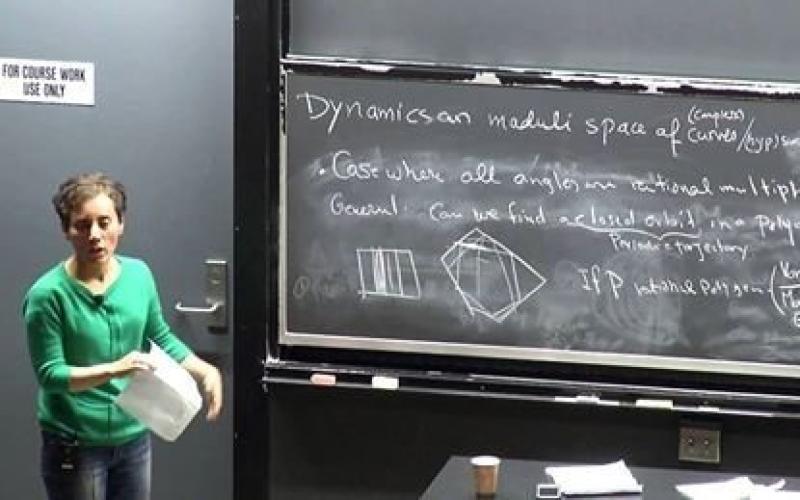 FOR COURSE WORK
USE ONLY
Dynamics on moduli space of (complex) curves/hyp) su
. Case where all angles are rational multipl
General. Can we find a closed orbit in a Polyg
Periodic trajectory
If P rational Polygon